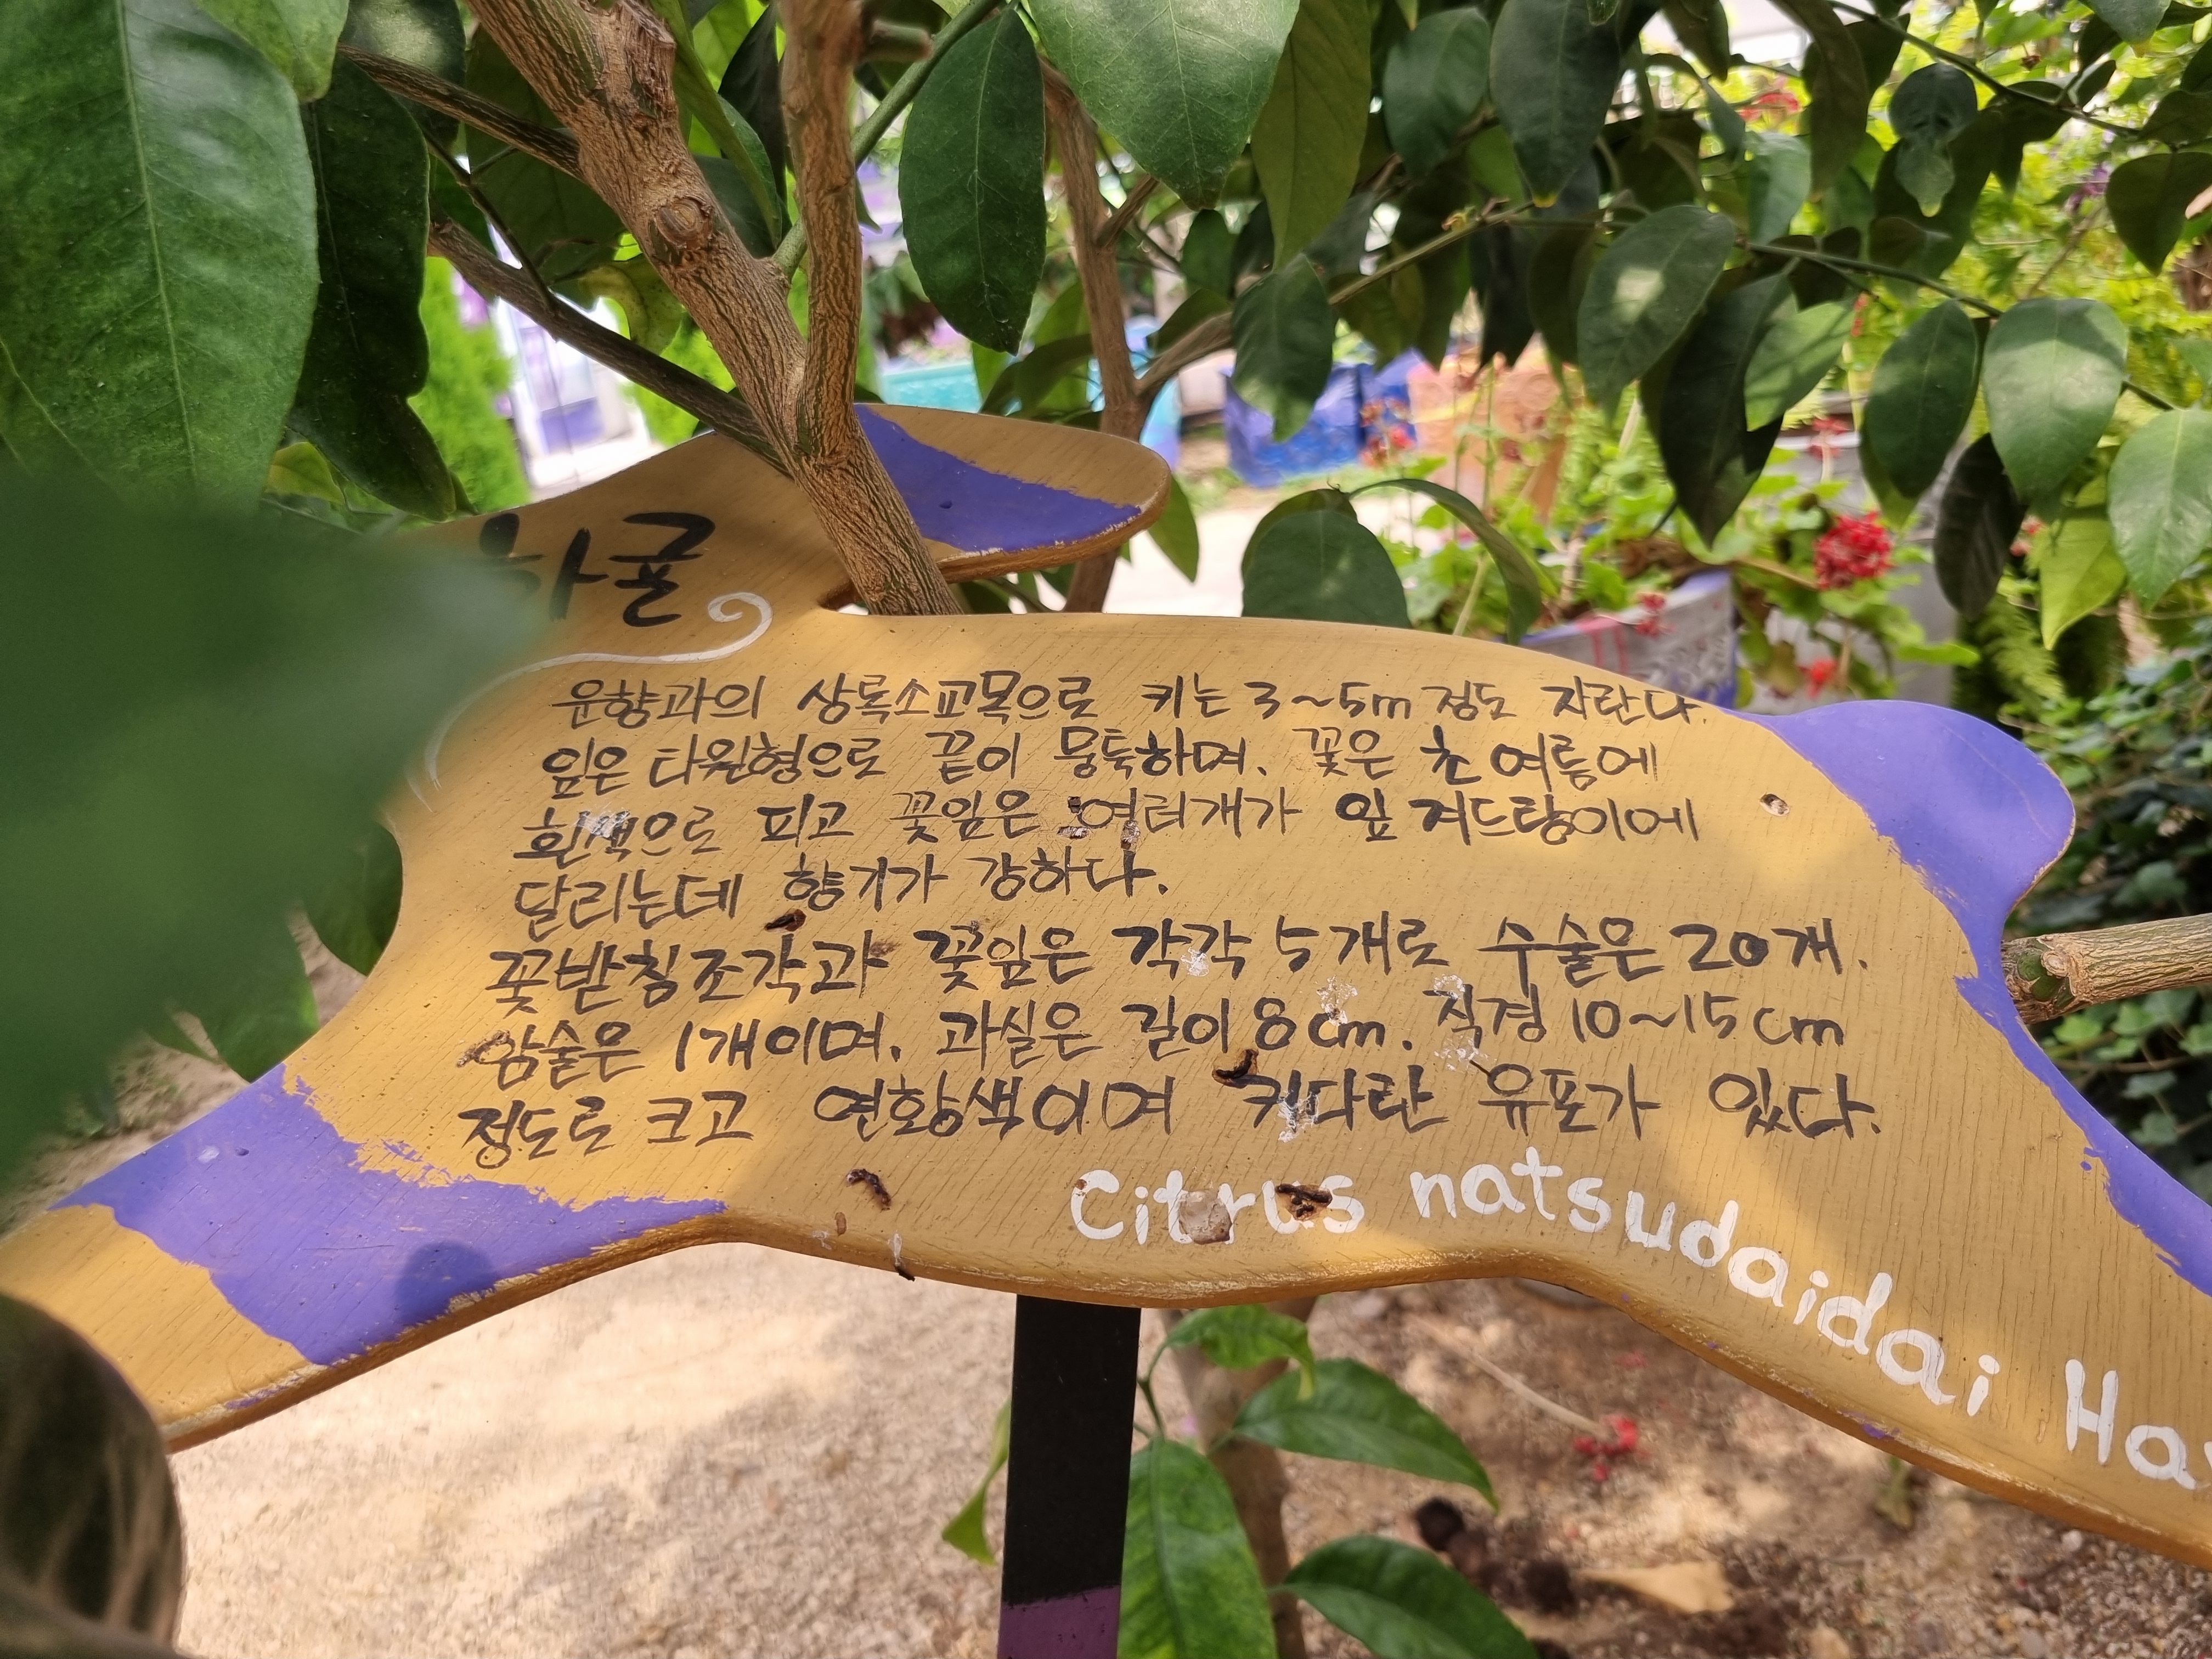 하귤
운향과의 상록소교목으로 키는 3~5m 정도 자란다.
잎은 타원형으로 끝이 뭉툭하며. 꽃은 초 여름에
흰색으로 피고 꽃잎은 여러개가 잎 겨드랑이에
달리는데 향기가 강하다.
꽃받침조각과 꽃잎은 각각 5개로 수술은 20개.
암술은 1개이며. 과실은 길이 8cm. 직경 10~15cm
정도로 크고 연황색이며 커다란 유포가 있다.
Citrus natsudaidai